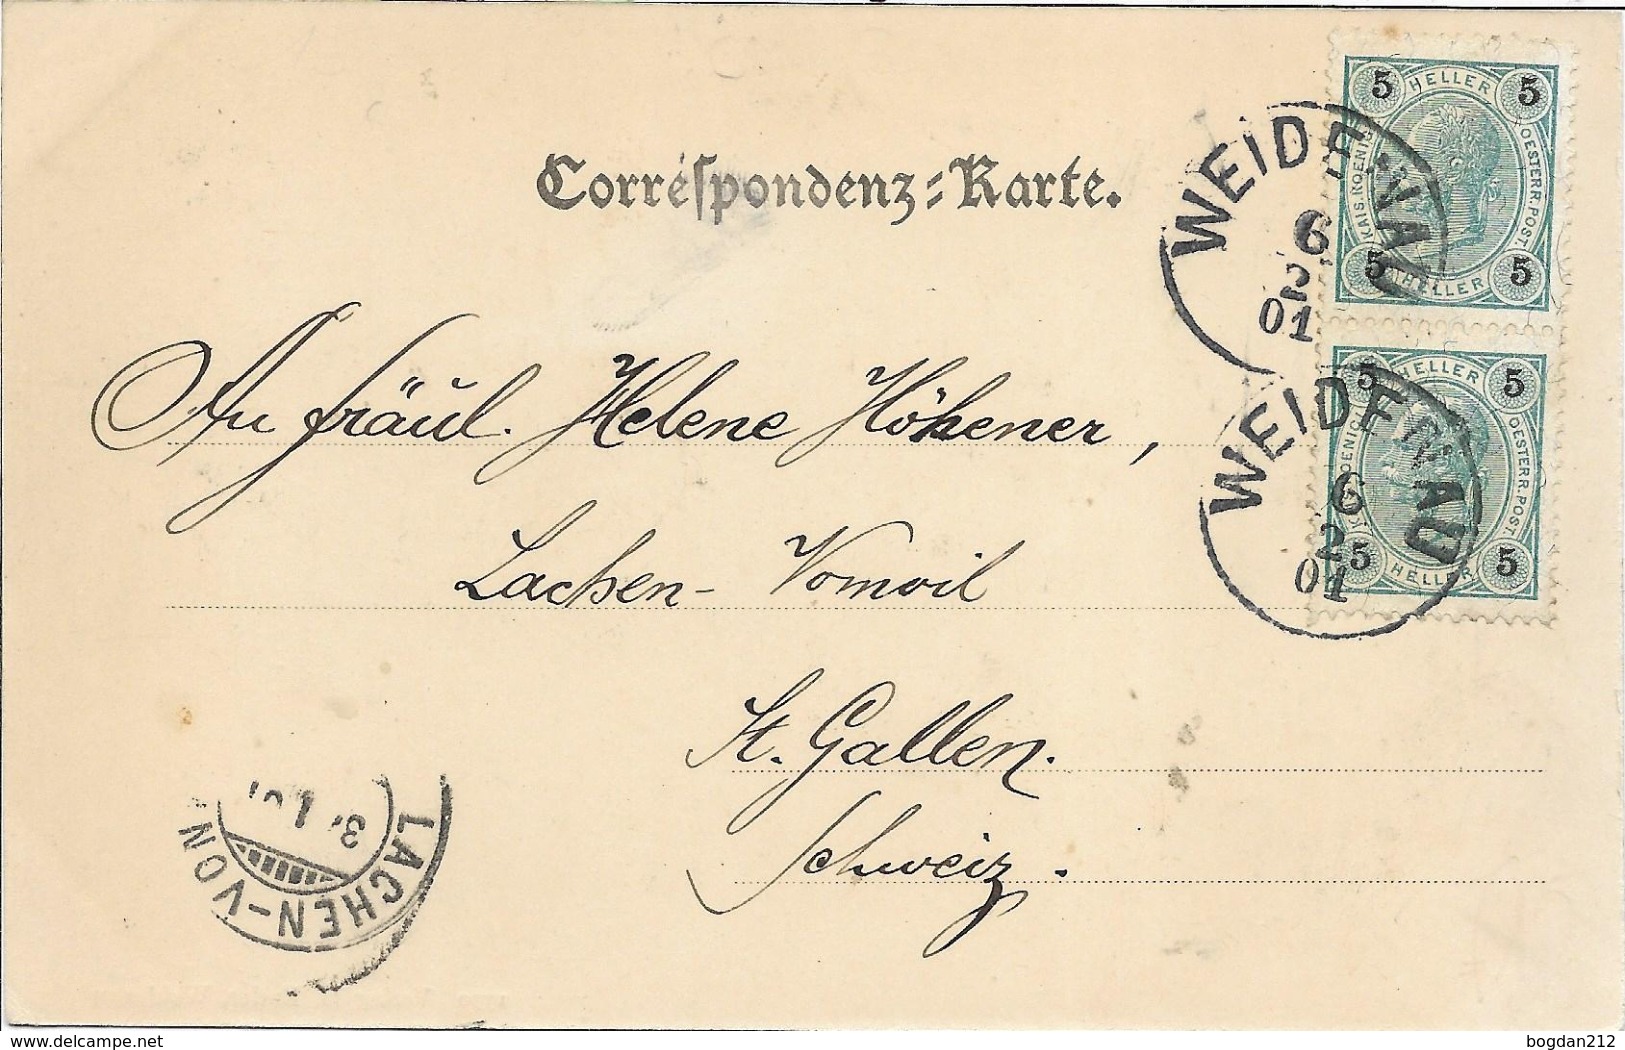 Correspondenz-Karte.
5 HELLER 5
KAIS. KOENIGL. OESTERR. POST.
5 HELLER 5
WEIDENAU
6
2
01
5 HELLER 5
OESTERR. POST.
5 HELLER 5
WEIDENAU
6
2
01
An Fräul. Helene Höhener,
Lachen-Vonwil
St. Gallen.
Schweiz.
LACHEN-VON
www.delcampe.net
bogdan212